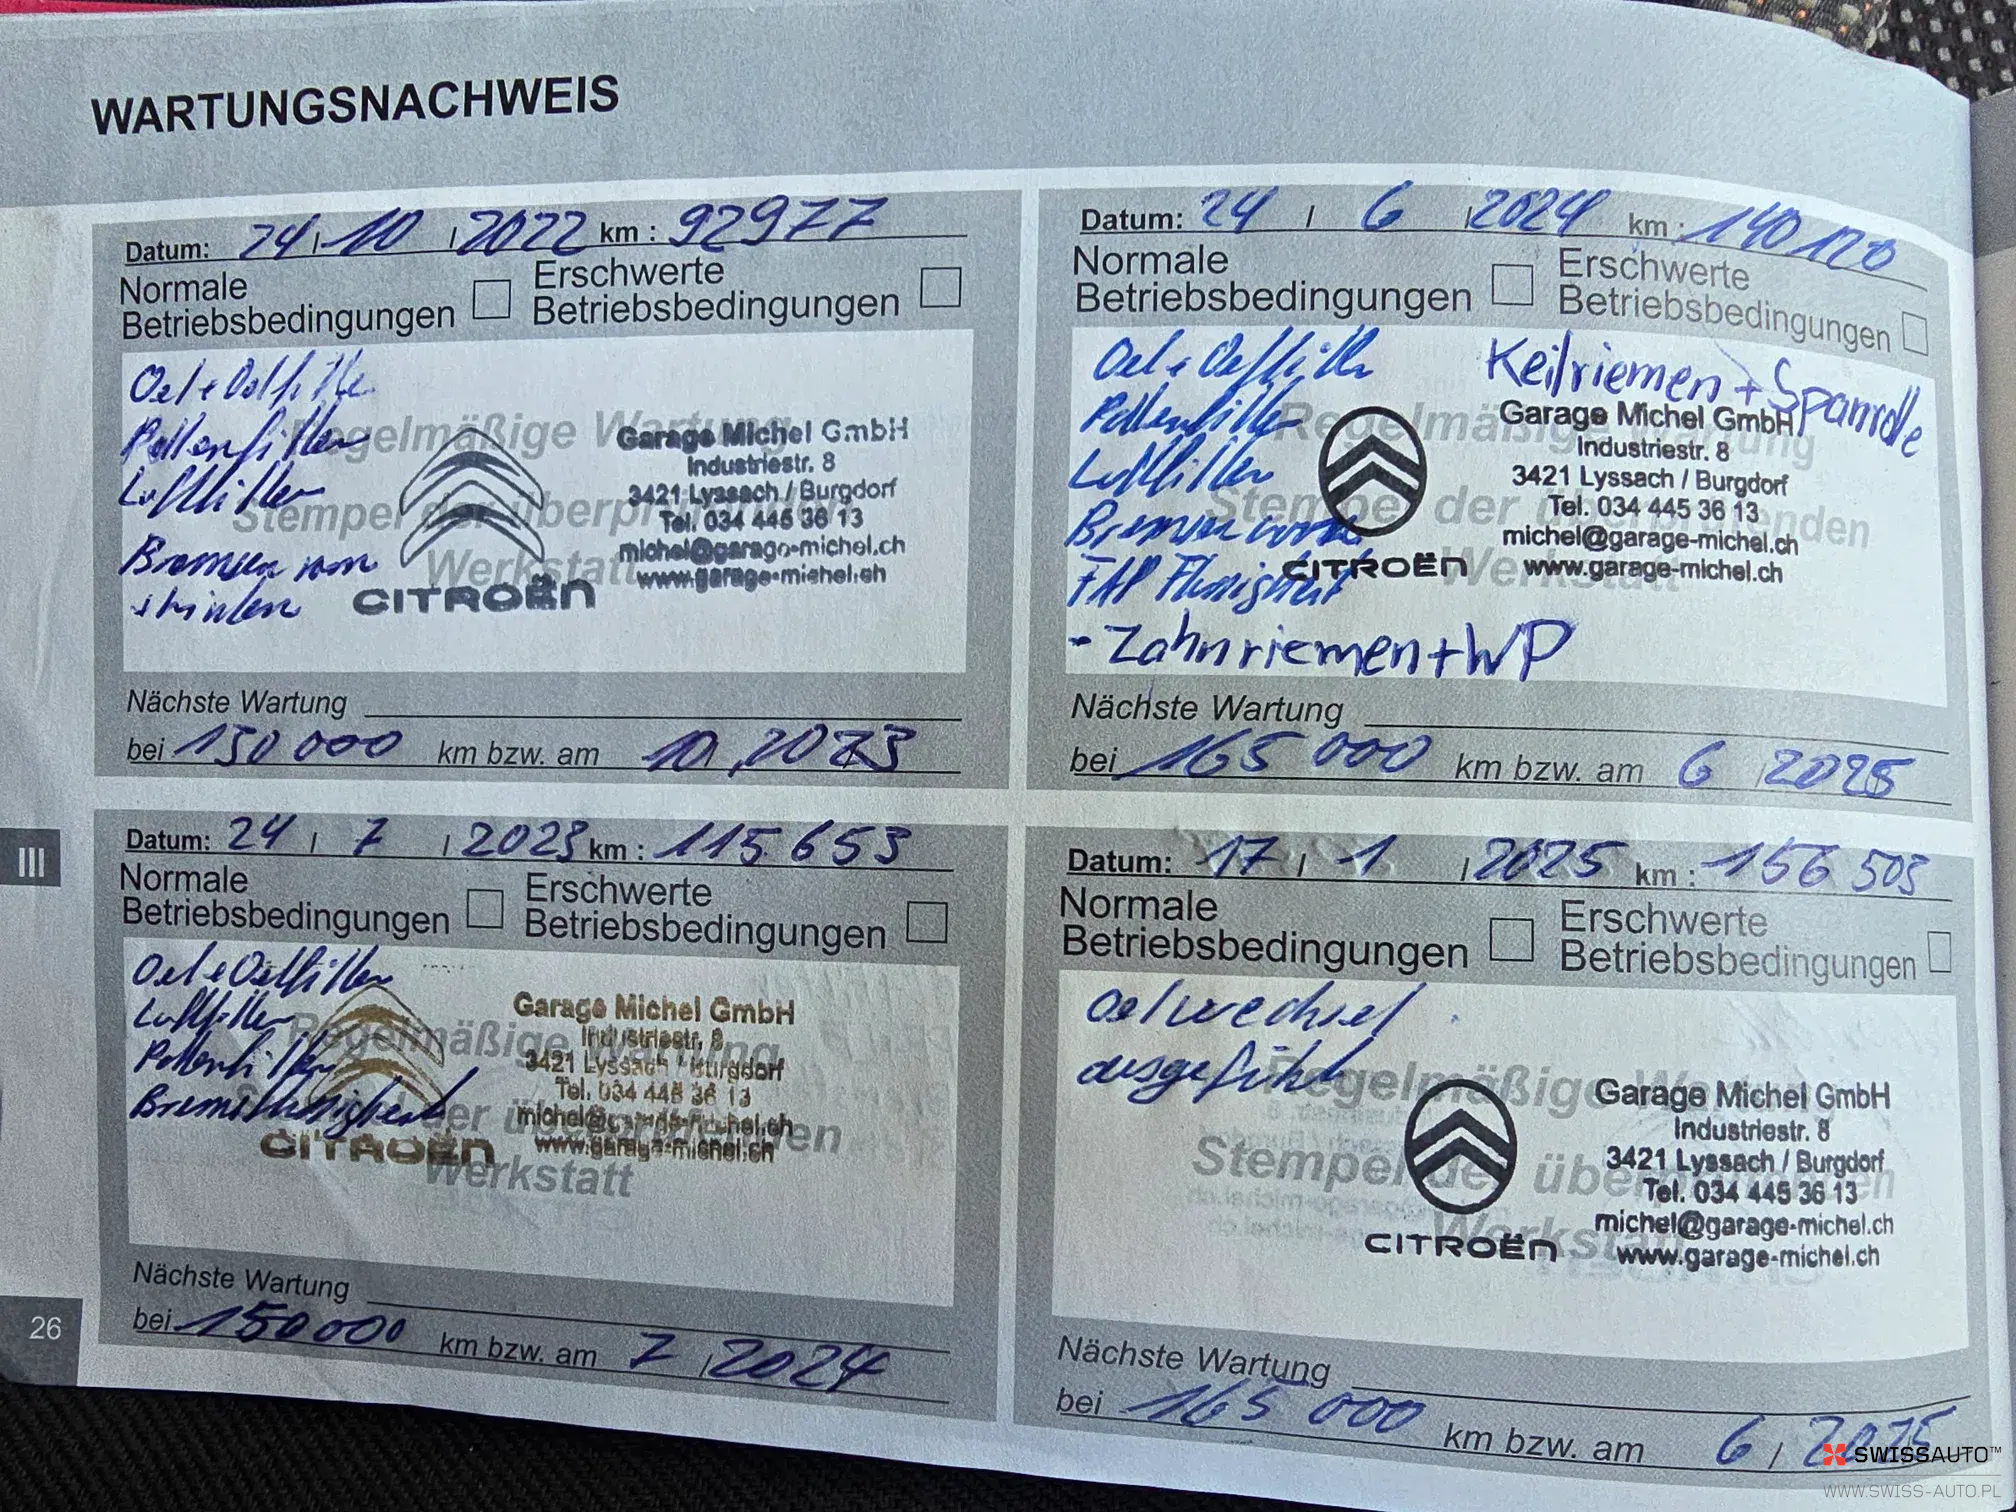 WARTUNGSNACHWEIS
Datum: 24 / 10 / 2022 km : 92977
Normale Betriebsbedingungen
Erschwerte Betriebsbedingungen
Oel + Oelfilter
Pollenfilter
Luftfilter
Bremsen vorn
+ hinten
Regelmäßige Wartung
Stempel der überprüfenden
Werkstatt
CITROËN
Garage Michel GmbH
Industriestr. 8
3421 Lyssach / Burgdorf
Tel. 034 445 36 13
michel@garage-michel.ch
www.garage-michel.ch
Nächste Wartung
bei 130 000 km bzw. am 10, 2023
Datum: 24 / 7 / 2023 km : 115.653
Normale Betriebsbedingungen
Erschwerte Betriebsbedingungen
Oel + Oelfilter
Luftfilter
Pollenfilter
Bremsflüssigkeit
Regelmäßige Wartung
Stempel der überprüfenden
Werkstatt
CITROËN
Garage Michel GmbH
Industriestr. 8
3421 Lyssach / Burgdorf
Tel. 034 445 36 13
michel@garage-michel.ch
www.garage-michel.ch
Nächste Wartung
bei 150000 km bzw. am 7 / 2024
Datum: 24 / 6 / 2024 km : 140120
Normale Betriebsbedingungen
Erschwerte Betriebsbedingungen
Oel + Oelfilter
Pollenfilter
Luftfilter
Bremsen vorn
FAP Flüssigkeit
- Zahnriemen + WP
Keilriemen + Spannrolle
Regelmäßige Wartung
Stempel der überprüfenden
Werkstatt
CITROËN
Garage Michel GmbH
Industriestr. 8
3421 Lyssach / Burgdorf
Tel. 034 445 36 13
michel@garage-michel.ch
www.garage-michel.ch
Nächste Wartung
bei 165 000 km bzw. am 6 / 2025
Datum: 17 / 1 / 2025 km : 156 503
Normale Betriebsbedingungen
Erschwerte Betriebsbedingungen
Oelwechsel
ausgeführt
Regelmäßige Wartung
Stempel der überprüfenden
Werkstatt
CITROËN
Garage Michel GmbH
Industriestr. 8
3421 Lyssach / Burgdorf
Tel. 034 445 36 13
michel@garage-michel.ch
www.garage-michel.ch
Nächste Wartung
bei 165 000 km bzw. am 6 / 2025
III
26
SWISSAUTO™
WWW.SWISS-AUTO.PL